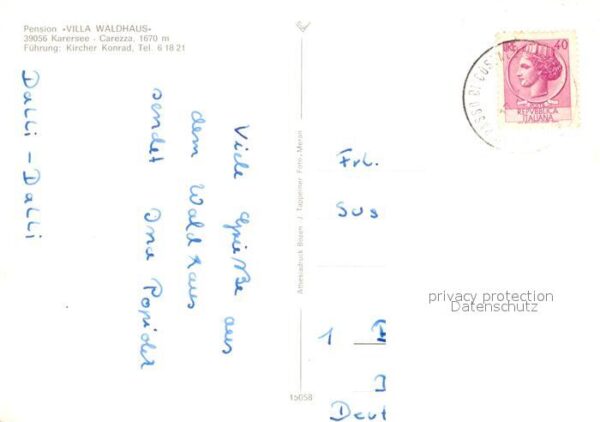 Pension «VILLA WALDHAUS»
39056 Karersee - Carezza, 1670 m
Führung: Kircher Konrad, Tel. 6 18 21
Viele Grüße aus
dem Waldhaus
sendet Ina
Dalli - Dalli
Athesiadruck Bozen - J. Tappeiner Foto, Meran
15058
LIRE 40
REPVBBLICA
ITALIANA
PASSO DI COST
Frl.
Sus
1
Deut
privacy protection
Datenschutz